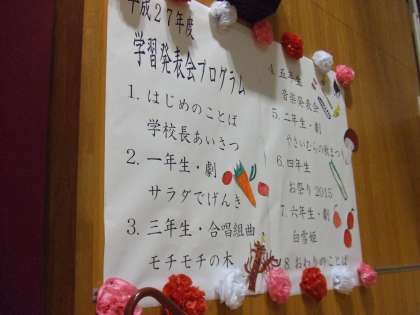 平成27年度
学習発表会プログラム
1. はじめのことば
学校長あいさつ
2. 一年生・劇
サラダでげんき
3. 三年生・合唱組曲
モチモチの木
4. 五年生
音楽発表会
5. 二年生・劇
やさいむらの秋まつり
6. 四年生
お祭り2015
7. 六年生・劇
白雪姫
8. おわりのことば